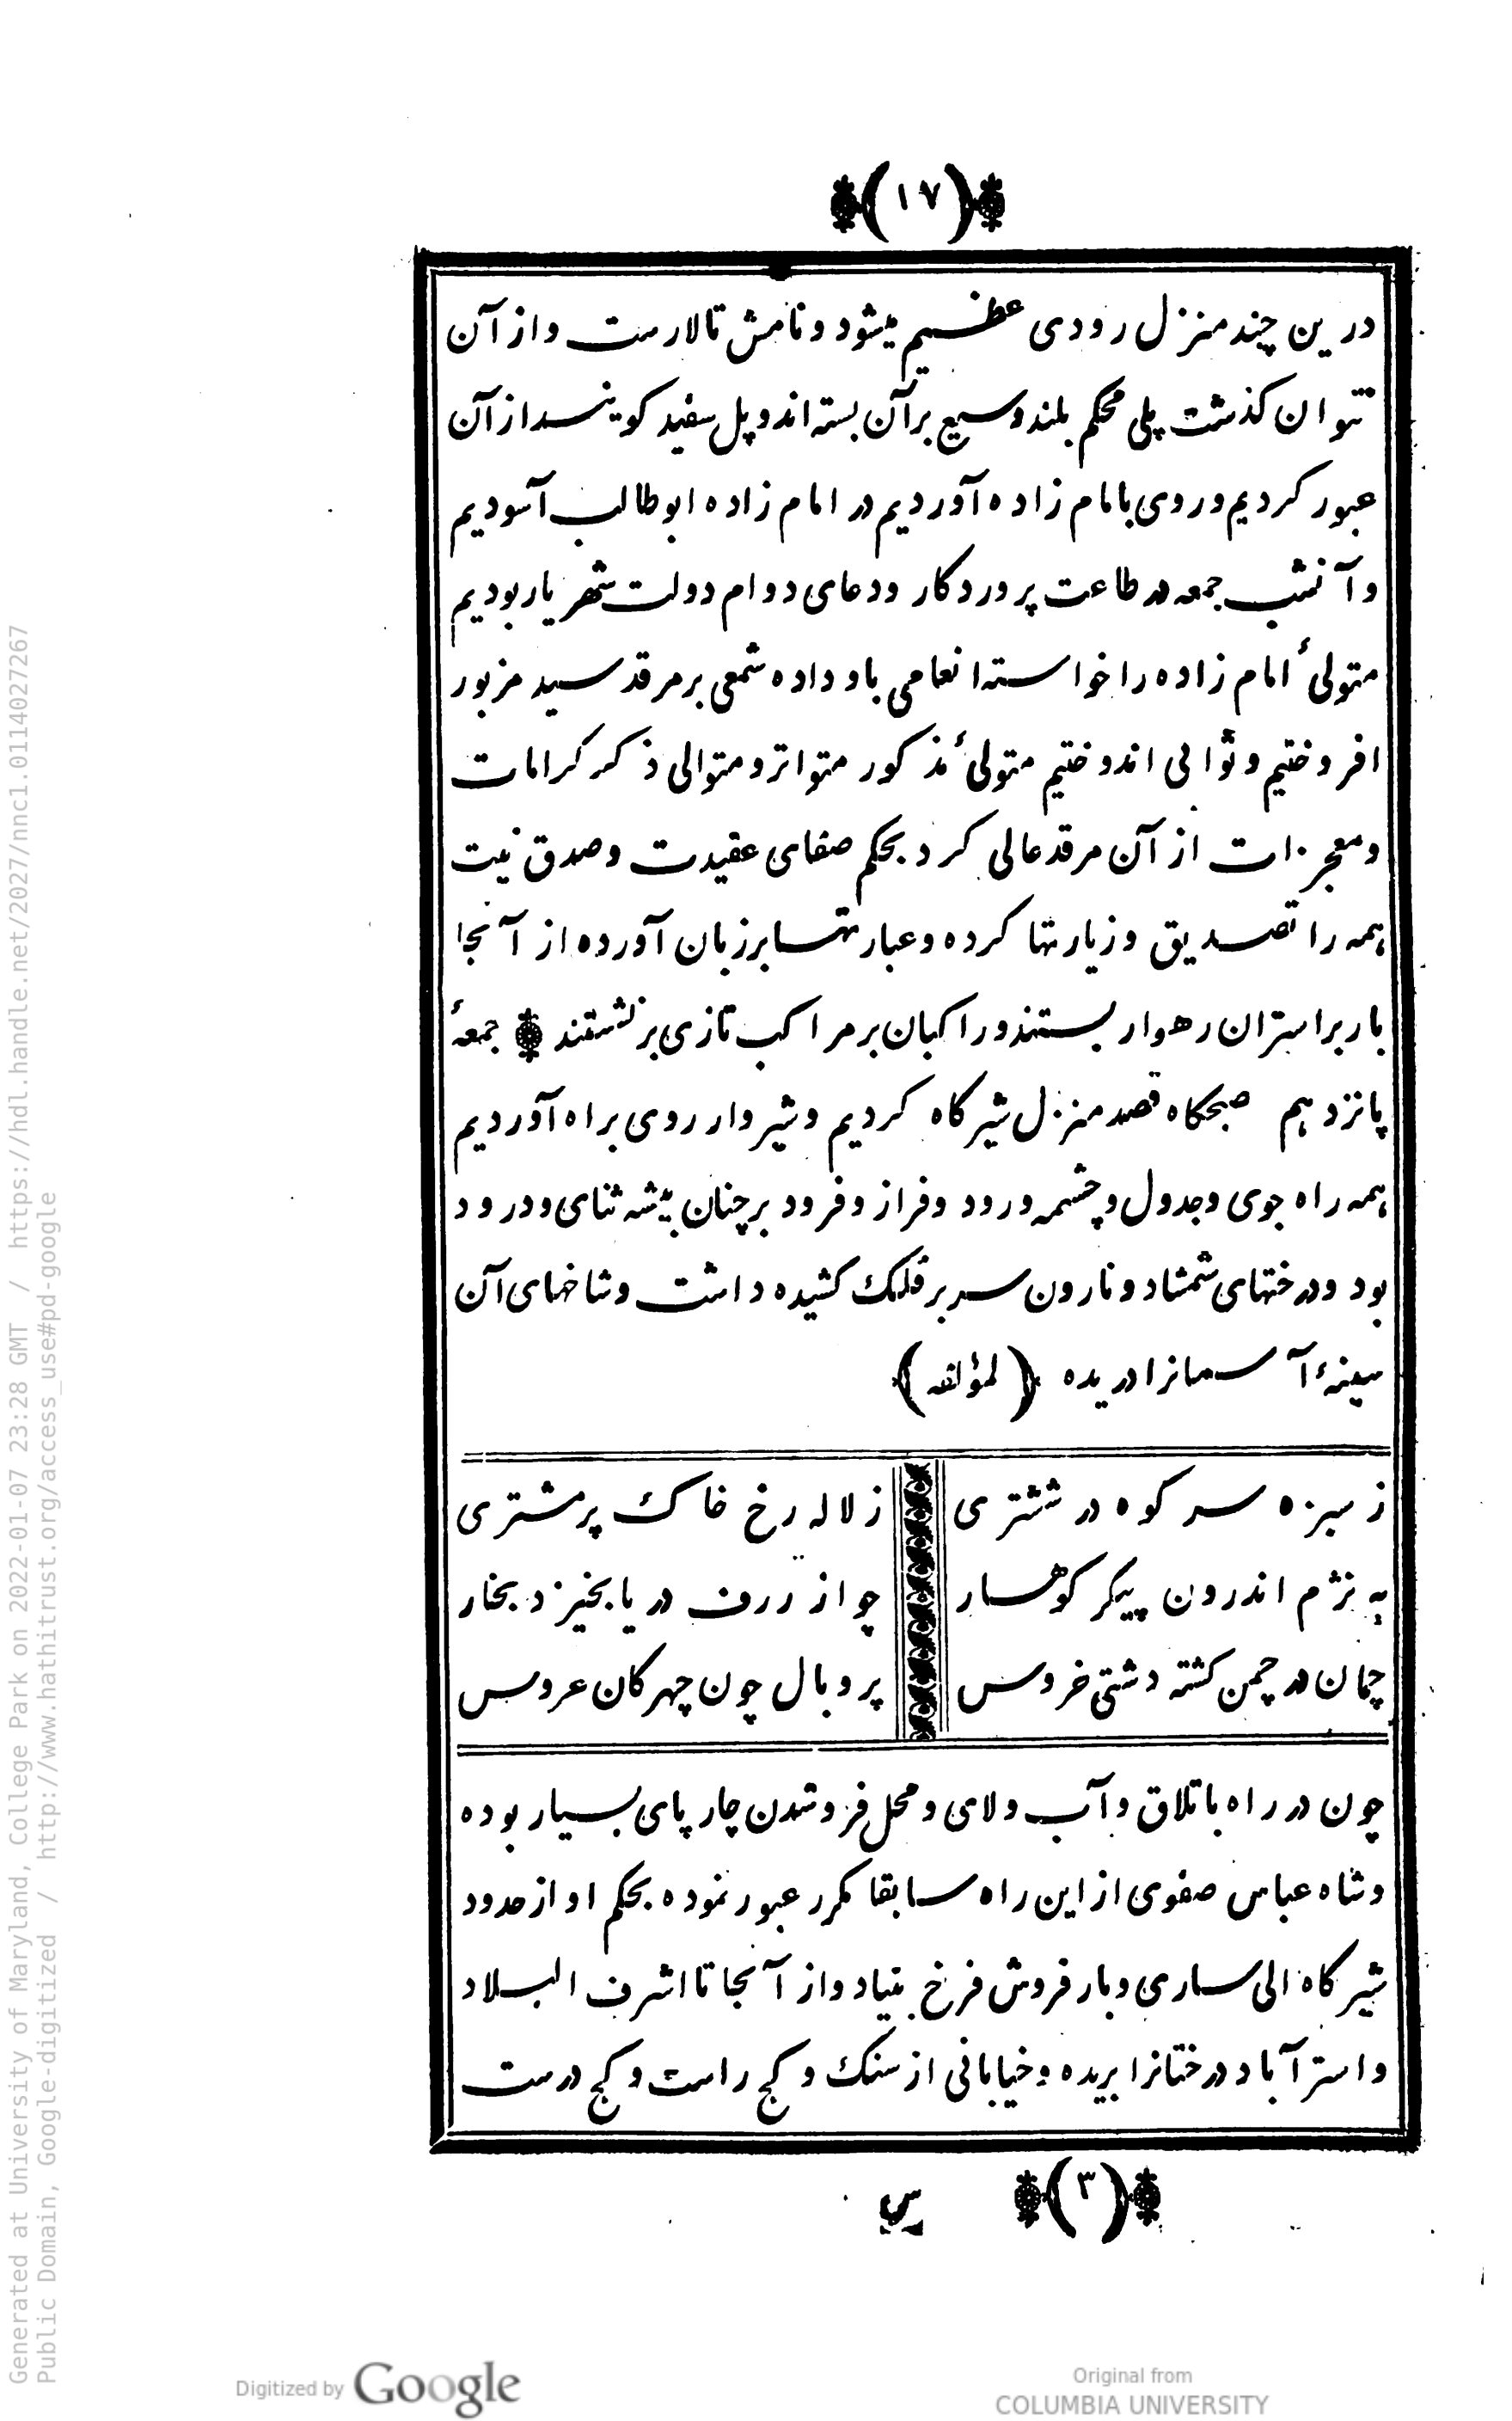 (۱۷)
درین چند منزل رودی عظیم میشود و نامش تالارست و از آن
نتوان کذشت پلی محکم بلند وسیع برآن بسته‌اند و پل سفید کویند از آن
عبور کردیم و روی بامام زاده آوردیم در امام زاده ابوطالب آسودیم
و آنشب جمعه در طاعت پروردکار و دعای دوام دولت شهریار بودیم
متولیٔ امام زاده را خواسته انعامی باو داده شمعی بر مرقد سید مزبور
افروختیم و ثوابی اندوختیم متولیٔ مذکور متواتر و متوالی ذکر کرامات
و معجزات از آن مرقد عالی کرد بحکم صفای عقیدت و صدق نیت
همه را تصدیق و زیارتها کرده و عبارتها بر زبان آورده از آنجا
بار بر استران رهوار بستند و راکبان بر مراکب تازی بر نشستند جمعهٔ
پانزدهم صبحکاه قصد منزل شیرکاه کردیم و شیروار روی براه آوردیم
همه راه جوی و جدول و چشمه و رود و فراز و فرود بر چنان بیشه ثنای و درود
بود و درختهای شمشاد و نارون سر بر فلک کشیده داشت و شاخهای آن
سینهٔ آسمانرا دریده (لمؤلفه)
ز سبزه سر کوه در ششتری ز لاله رخ خاک پر مشتری
به نژم اندرون پیکر کوهسار چو از ررف دریا بخیزد بخار
چمان در چمن کشته دشتی خروس پر و بال چون چهرکان عروس
چون در راه باتلاق و آب و لای و محل فرو شدن چارپای بسیار بوده
و شاه عباس صفوی از این راه سابقا مکرر عبور نموده بحکم او از حدود
شیرکاه الی ساری و بار فروش فرخ بنیاد و از آنجا تا اشرف البلاد
و استرآباد درختانرا بریده و خیابانی از سنک و کج راست و کج درست
(۳) س
Generated at University of Maryland, College Park on 2022-01-07 23:28 GMT / https://hdl.handle.net/2027/nnc1.0114027267
Public Domain, Google-digitized / http://www.hathitrust.org/access_use#pd-google
Digitized by Google
Original from
COLUMBIA UNIVERSITY